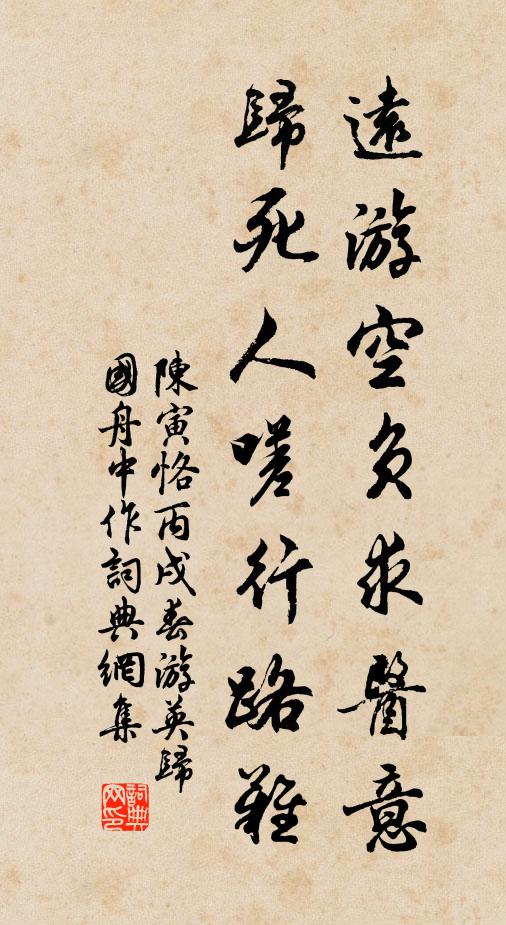 遠游空負求醫意
歸死人嗟行路難
陳寅恪丙戌春游英歸
國舟中作詞典網集
詞典网印